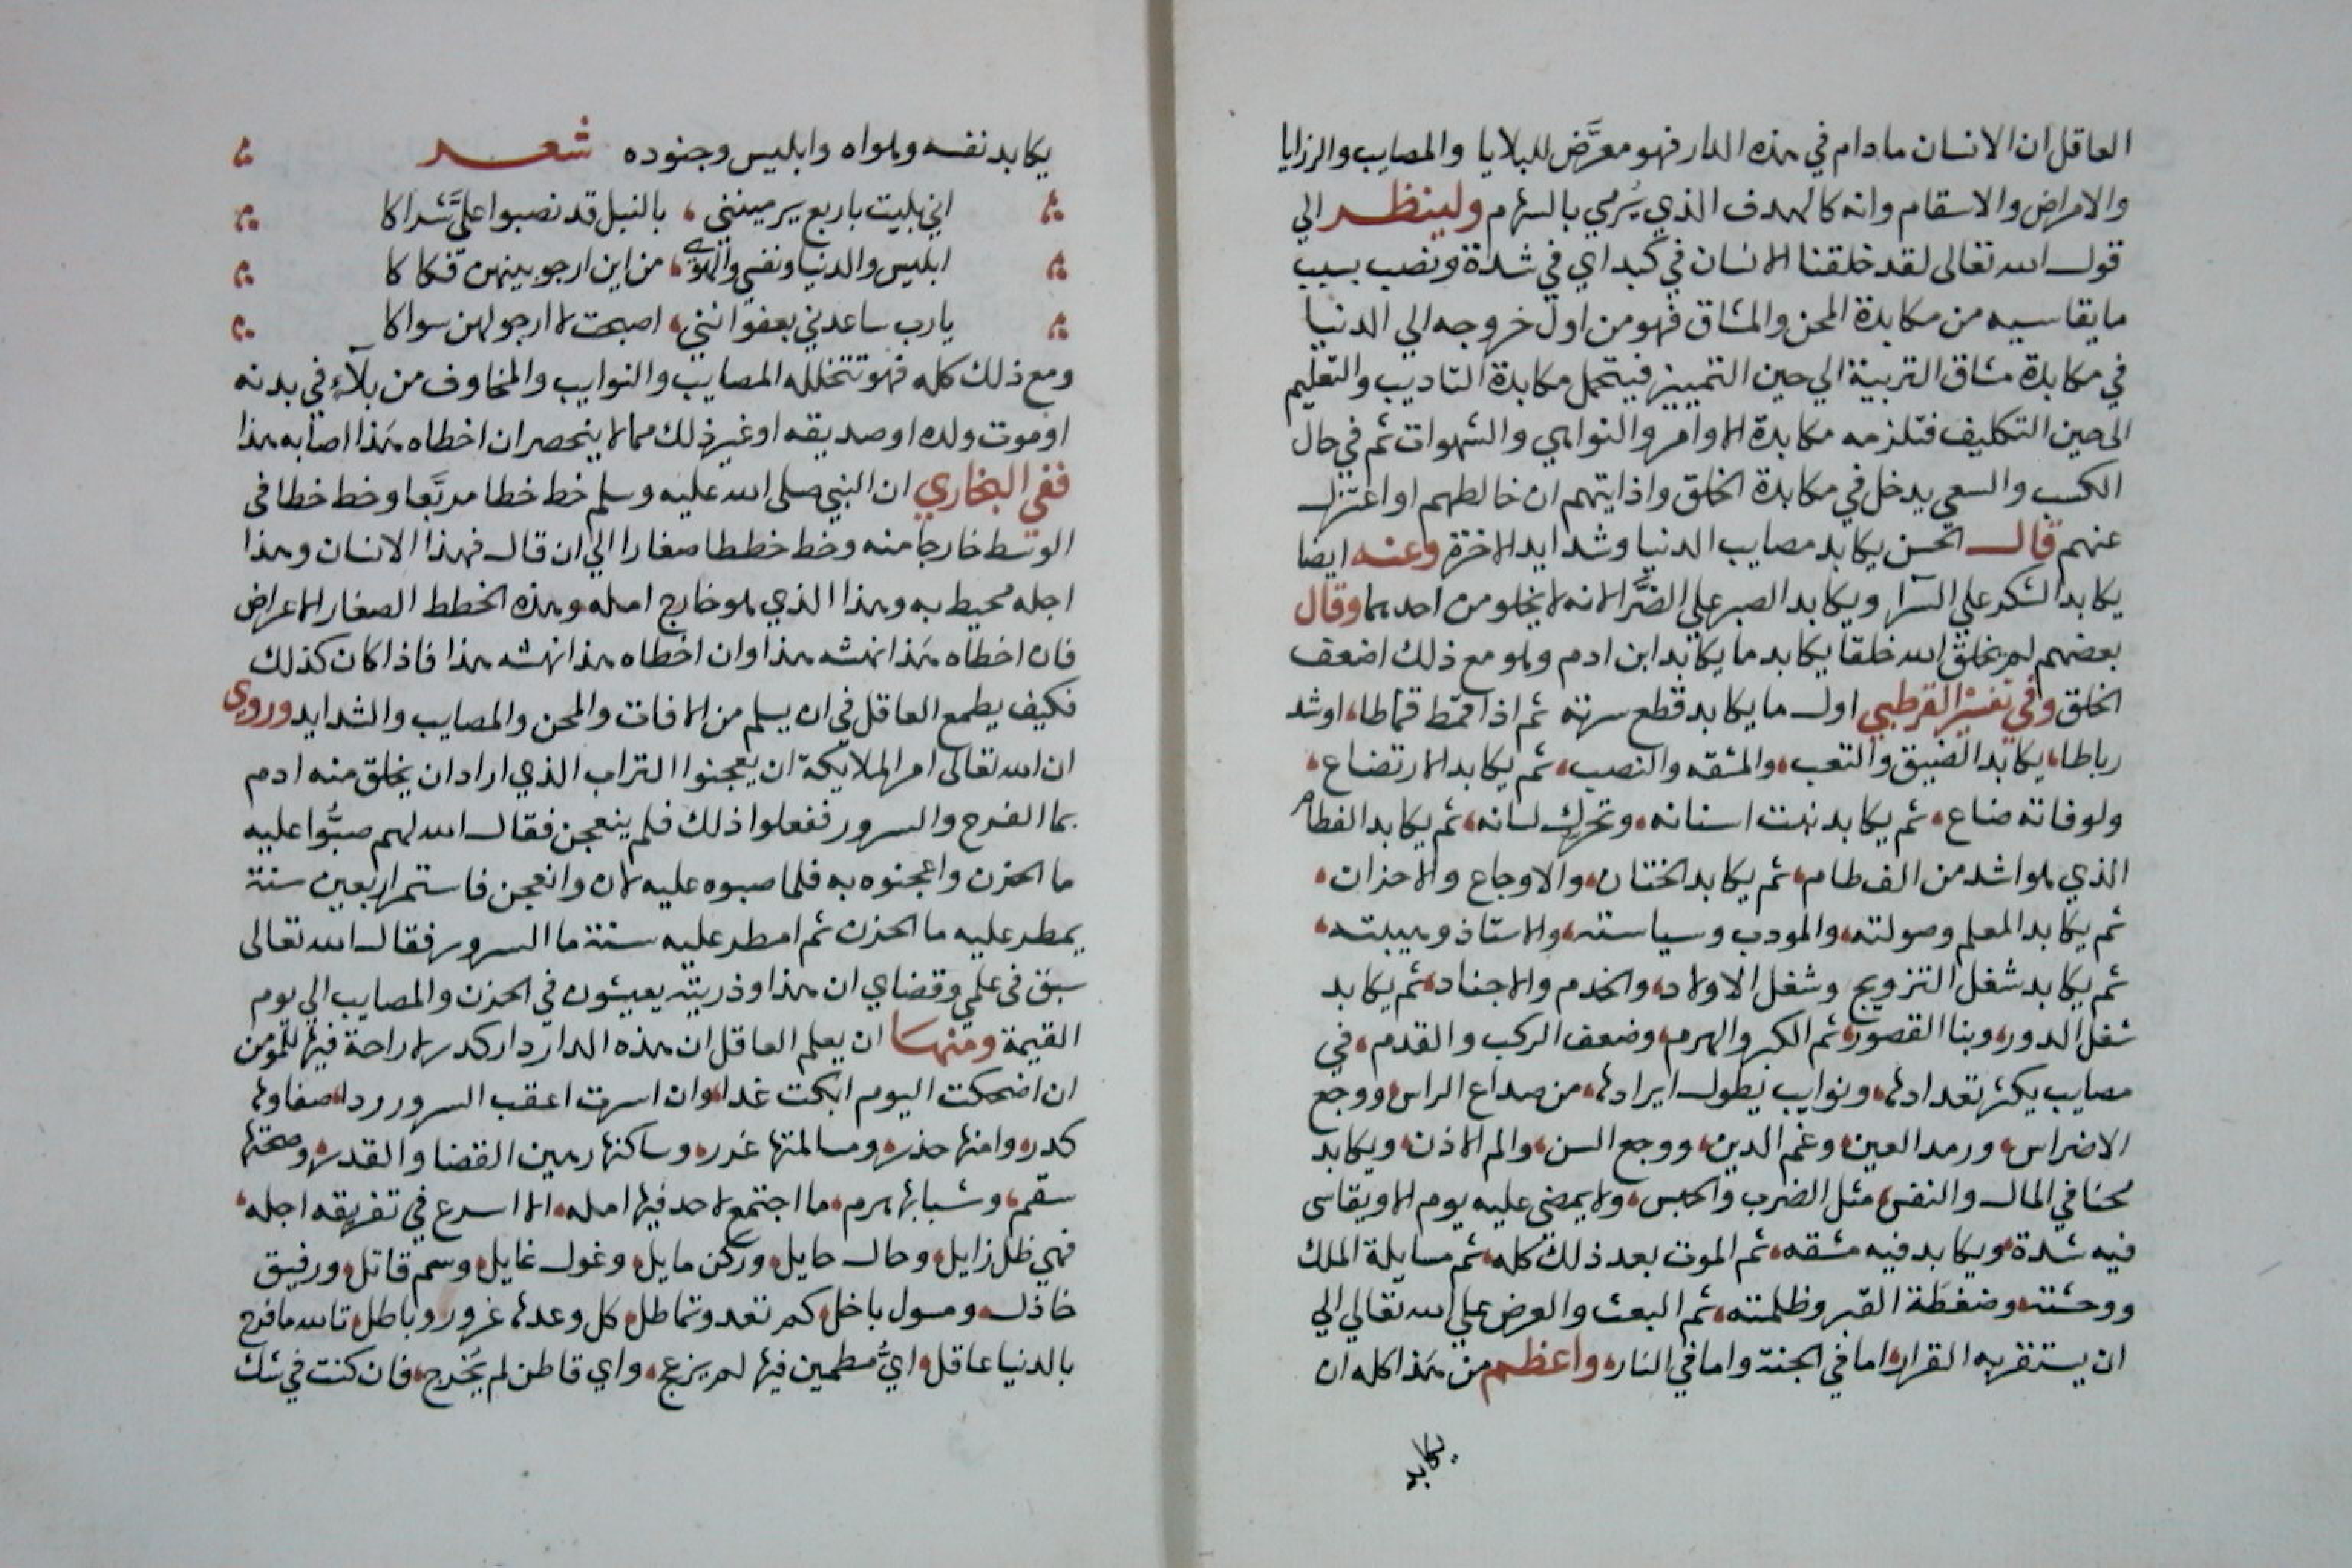 العاقل ان الانسان مادام في هذه الدار فهو معرَّض للبلايا والمصايب والرزايا
والامراض والاسقام وانه كالهدف الذي يُرمي بالسهام ولينظر الي
قول الله تعالى لقد خلقنا الانسان في كبد اي في شدة ونصب بسبب
ما يقاسيه من مكابدة المحن والمشاق فهو من اول خروجه الي الدنيا
في مكابدة مشاق التربية الي حين التمييز فيتحمل مكابدة التاديب والتعليم
الى حين التكليف فتلزمه مكابدة الاوامر والنواهي والشهوات ثم في حال
الكسب والسعي يدخل في مكابدة الخلق واذايتهم ان خالطهم او اعتزل
عنهم قال الحسن يكابد مصايب الدنيا وشدايد الاخرة وعنه ايضا
يكابد الشكر علي السَّرا ويكابد الصبر علي الضَّرا لانه لا يخلو من احدهما وقال
بعضهم لم يخلق الله خلقا يكابد ما يكابد ابن ادم وهو مع ذلك اضعف
الخلق وفي تفسير القرطبي اول ما يكابد قطع سرته ثم اذا قمّط قماطا، او شد
رباطا، يكابد الضيق والتعب، والمشقه والنصب، ثم يكابد الارتضاع،
ولو فاته ضاع، ثم يكابد نبت اسنانه، وتحرك لسانه، ثم يكابد الفطام
الذي هو اشد من الفطام، ثم يكابد الختان، والاوجاع والاحزان،
ثم يكابد المعلم وصولته، والمودب وسياسته، والاستاذ وهيبته،
ثم يكابد شغل التزويج وشغل الاولاد، والخدم والاجناد، ثم يكابد
شغل الدور، وبنا القصور، ثم الكبر والهرم، وضعف الركب والقدم، في
مصايب يكثر تعدادها، ونوايب يطول ايرادها، من صداع الراس، ووجع
الاضراس، ورمد العين، وغم الدين، ووجع السن، والم الاذن، ويكابد
محنا في المال والنفس، مثل الضرب والحبس، ولا يمضى عليه يوم الا ويقاسى
فيه شدة، ويكابد فيه مشقه، ثم الموت بعد ذلك كله، ثم مسايلة الملك
ووحشته، وضغطة القبر وظلمته، ثم البعث والعرض على الله تعالي الي
ان يستقر به القرار، اما في الجنة واما في النار، واعظم من هَذا كله ان
يكابد
يكابد نفسه وهواه وابليس وجنوده شعر
اني بليت باربع يرمينني، بالنبل قد نصبوا علىَّ شراكا
ابليس والدنيا ونفسي والهوى، من اين ارجو بينهن فكاكا
يارب ساعدني بعفو انني، اصبحت لا ارجو لهن سواكا
ومع ذلك كله فهو تتخلله المصايب والنوايب والمخاوف من بلآءٍ في بدنه
او موت ولده او صديقه او غير ذلك مما لا ينحصر ان اخطاه هَذا اصابه هذا
ففي البخاري ان النبي صلى الله عليه وسلم خط خطا مربَّعا وخط خطا في
الوسط خارجا منه وخط خططا صغارا الي ان قال فهذا الانسان وهذا
اجله محيط به وهذا الذي هو خارج امله وهذه الخطط الصغار الاعراض
فان اخطاه هَذا نهشه هذا وان اخطاه هذا نهشه هذا فاذا كان كذلك
فكيف يطمع العاقل في ان يسلم من الافات والمحن والمصايب والشدايد وروى
ان الله تعالى امر الملايكة ان يعجنوا التراب الذي اراد ان يخلق منه ادم
بما الفرح والسرور ففعلوا ذلك فلم ينعجن فقال الله لهم صبُّوا عليه
ما الحزن واعجنوه به فلما صبوه عليه لان وانعجن فاستمر اربعين سنة
يمطر عليه ما الحزن ثم امطر عليه سنة ما السرور فقال الله تعالى
سبق في علمي وقضاي ان هذا وذريته يعيشون في الحزن والمصايب الي يوم
القيمة ومنها ان يعلم العاقل ان هذه الدار دار كدر لا راحة فيها للمومن
ان اضحكت اليوم ابكت غدا، وان اسرت اعقب السرور ردا، صفاوها
كدر، وامنها حذر، ومسالمتها غرر، وساكنها رهين القضا والقدر، وصحتها
سقم، وشبابها هرم، ما اجتمع لاحد فيها امله، الا اسرع في تفريقه اجله،
فهي ظل زايل، وحال حايل، وركن مايل، وغول غايل، وسم قاتل، ورفيق
خاذل، ومسول باخل، كم تعد وتماطل، كل وعدها غرور وباطل، تالله ما فرح
بالدنيا عاقل، ايُّ مطمين فيها لم يزعج، واي قاطن لم يُخرج، فان كنت في شك